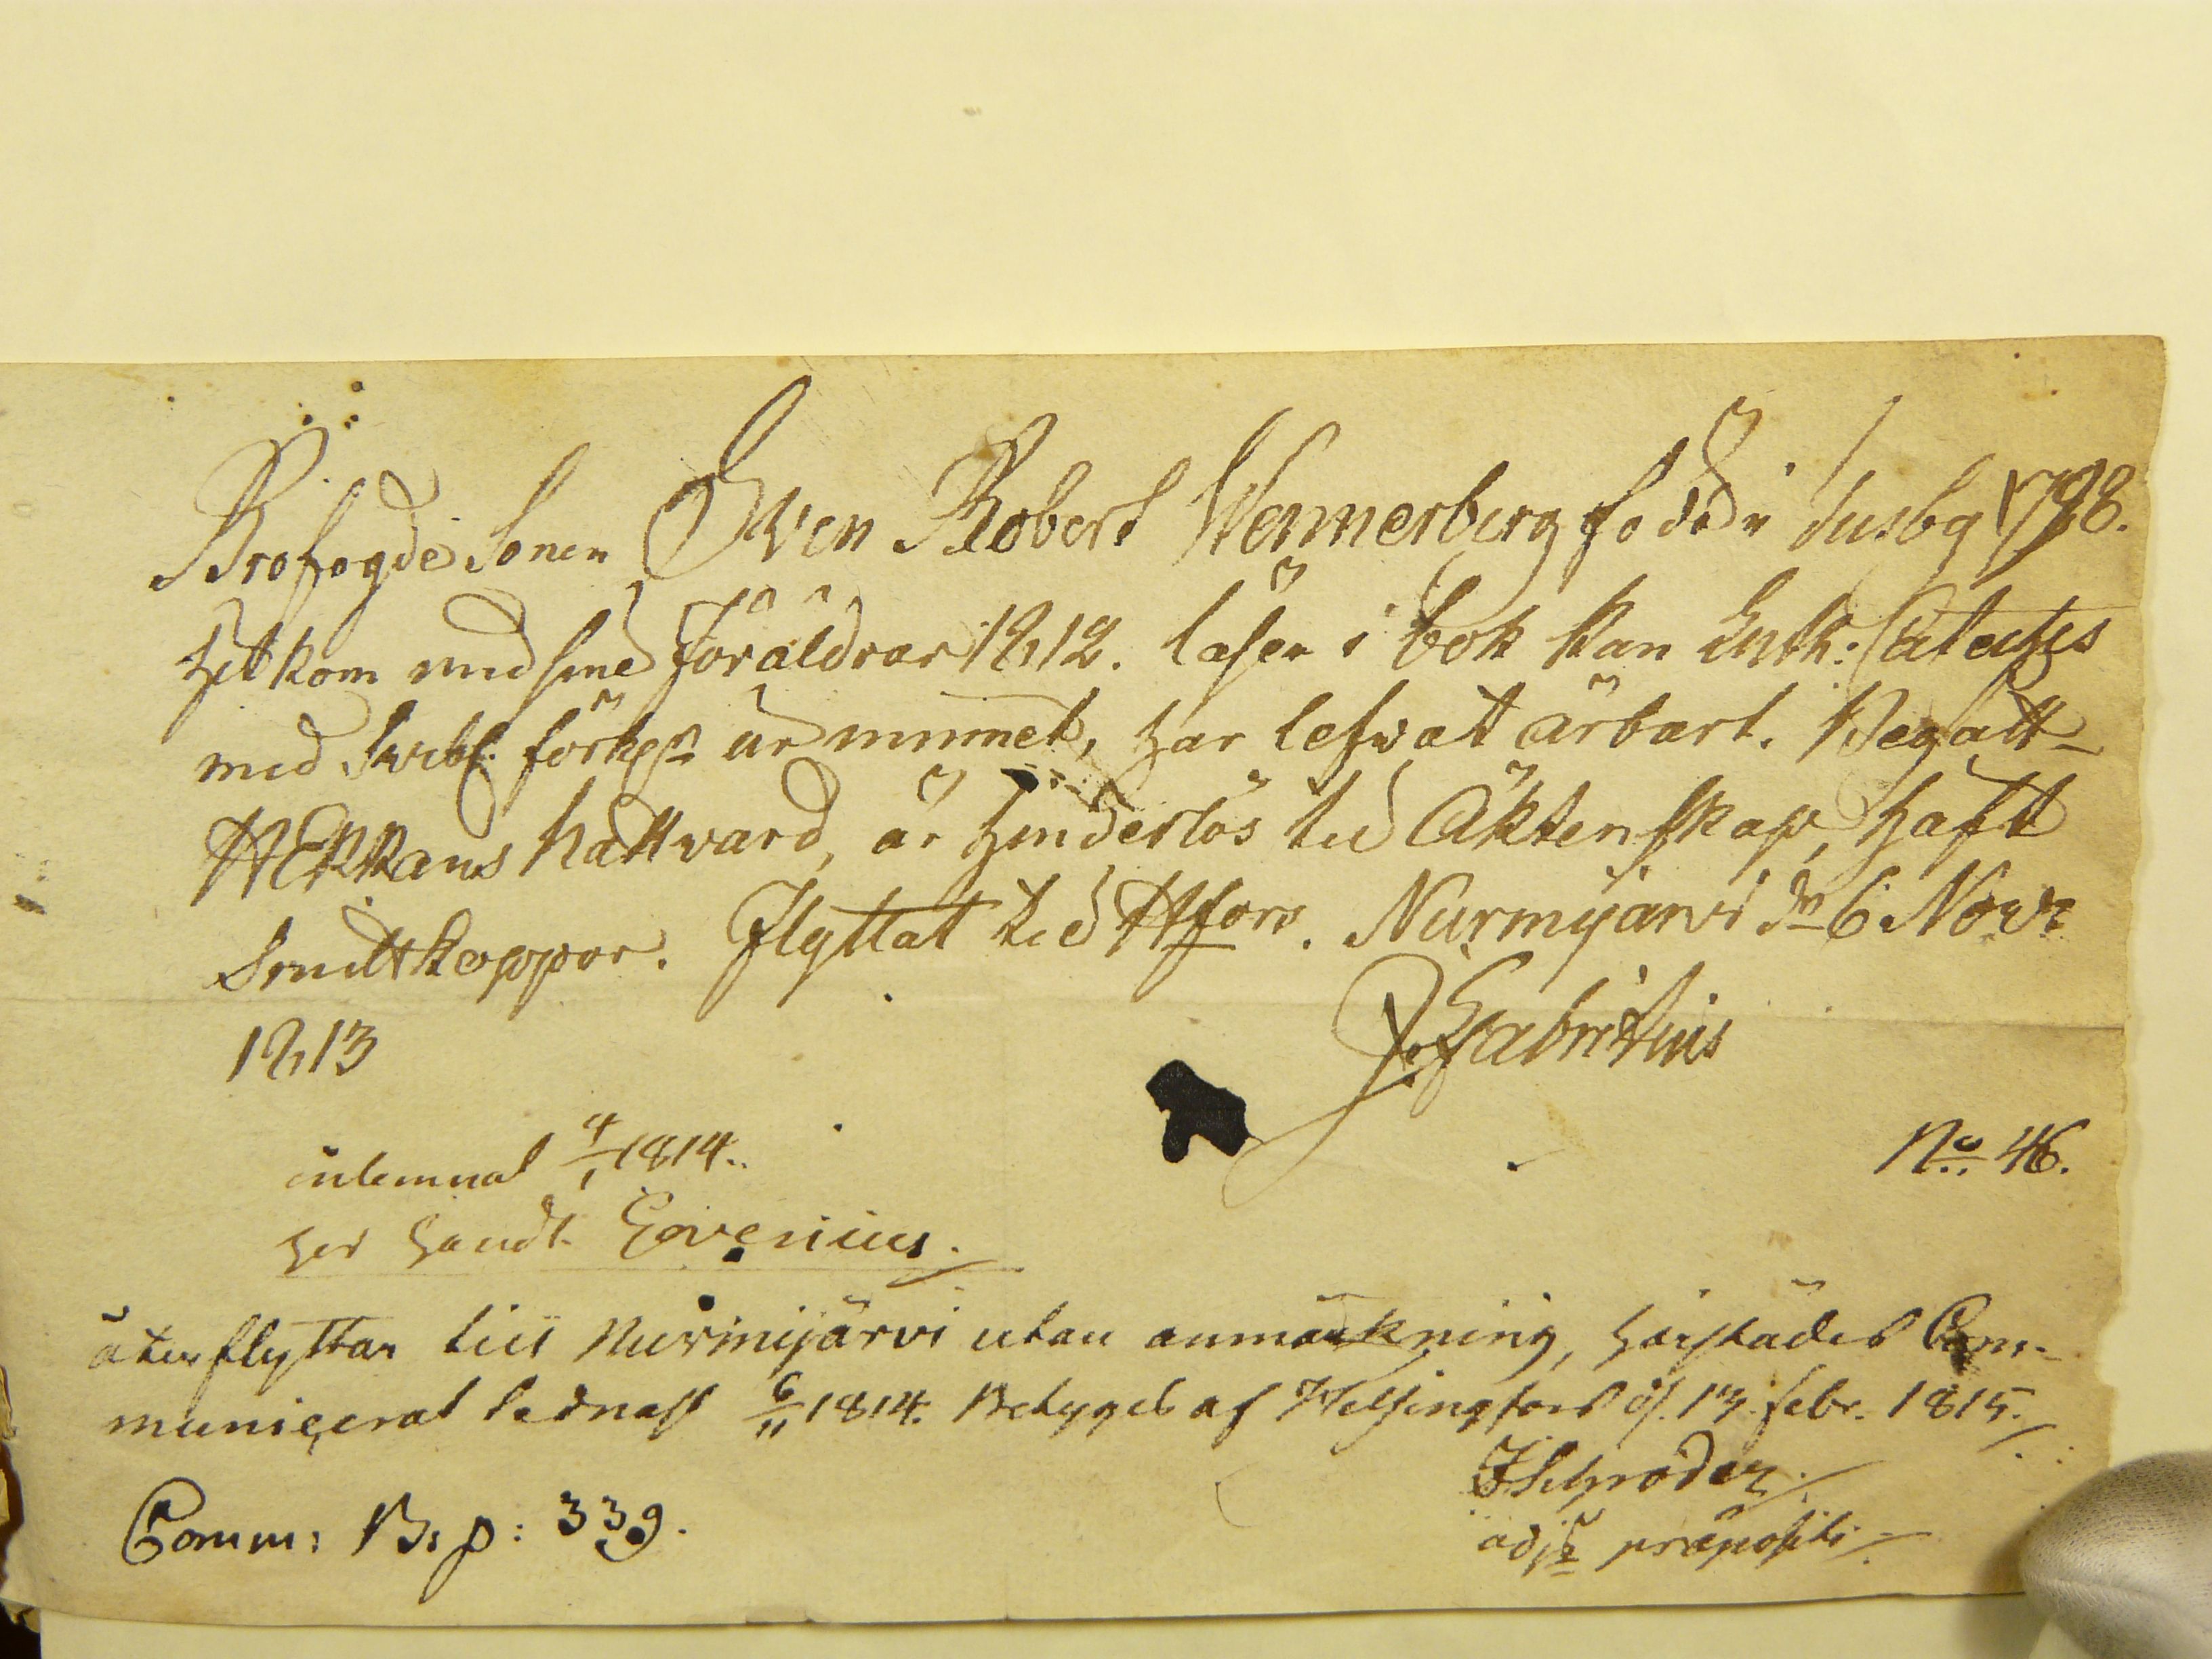 Brofogde Sonen Sven Robert Wennerberg född i Tusby 1798.
hitkom med sina Föräldrar 1812. läser i bok kan Enth: Cateches
med Swebil: förkl:n ur minnet, har lefwat ärbart. Begått
HERRans Nattvard, är hinderlös till Äktenskap, haft
Smittkoppor. Flyttat till Hfors. Nurmijärvi d:n 6 Novr
1813
P. Fabritius
inlemnat 4/1 1814.
No. 46.
här Handt. Govenius.
återflyttar till Nurmijärvi utan anmärkning, härstädes Com-
municerat sednast 6/11 1814. Betygeds af Helsingfors d. 13 febr. 1815.
J Schröder.
adj. præpositi
Comm: B: p: 339.